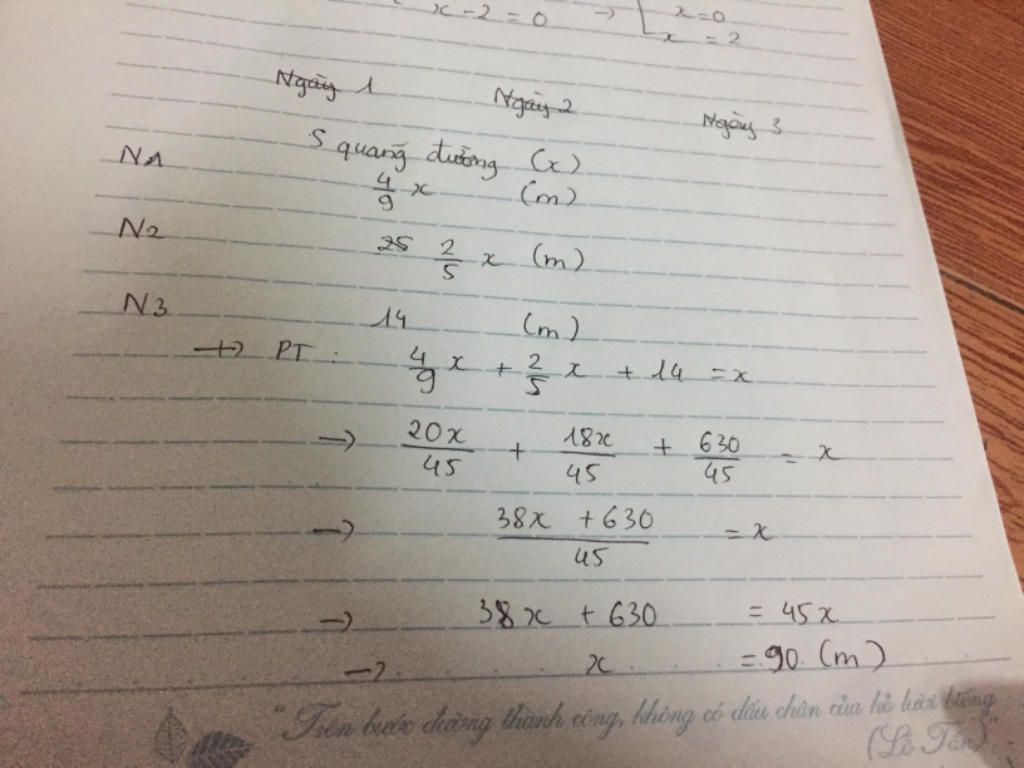 x - 2 = 0 → [ x = 0
x = 2
Ngày 1 Ngày 2 Ngày 3
S quãng đường (x)
N1 4/9 x (m)
N2 25 2/5 x (m)
N3 14 (m)
+) PT : 4/9 x + 2/5 x + 14 = x
→ 20x/45 + 18x/45 + 630/45 = x
→ 38x + 630/45 = x
→ 38x + 630 = 45x
→ x = 90 (m)
"Trên bước đường thành công, không có dấu chân của kẻ lười biếng"
(Lỗ Tấn)